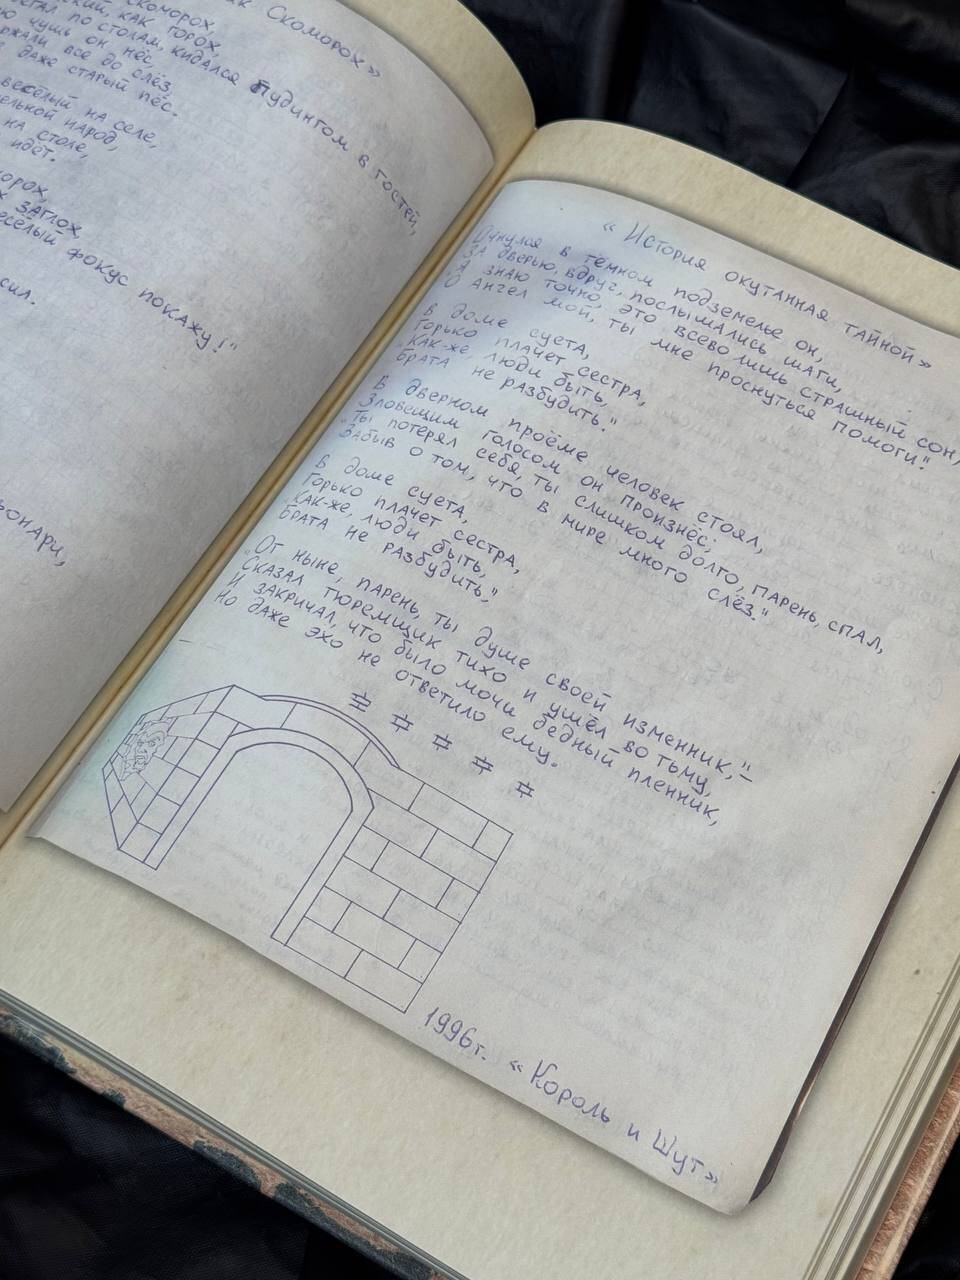 Скоморох»
скоморох,
как горох,
по столам, кидался пудингом в гостей,
чушь он нёс,
все до слёз,
даже старый пёс.
весёлый на селе,
народ,
на столе,
идёт.
заглох,
весёлый фокус покажу!"
«История окутанная тайной»
Очнулся в тёмном подземелье он,
За дверью, вдруг, послышались шаги,
"Я знаю точно, это всево лишь страшный сон,
О Ангел мой, ты мне проснуться помоги".
В доме суета,
Горько плачет сестра,
"Как-же люди быть,
Брата не разбудить."
В дверном проёме человек стоял,
Зловещим голосом он произнёс;
"Ты потерял себя, ты слишком долго, парень, спал,
Забыв о том, что в мире много слёз."
В доме суета,
Горько плачет сестра,
"Как-же, люди быть,
Брата не разбудить,"
"От ныне, парень, ты душе своей изменник,"-
Сказал тюремщик тихо и ушёл во тьму,
И закричал, что было мочи бедный пленник,
Но даже эхо не ответило ему.
1996г. «Король и Шут»